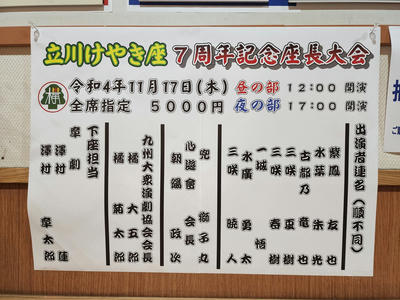 立川けやき座 7周年記念座長大会
令和4年11月17日(木) 昼の部 12:00 開演
全席指定 5000円 夜の部 17:00 開演
出演者連名(順不同)
紫鳳 友也
水葉 朱光
古都乃 竜也
三咲 夏樹
三咲 春樹
一城 悟
水廣 勇太
三咲 暁人
兜 獅子丸
心遊會 政次
朝陽
九州大衆演劇協会会長
橘 大五郎
橘 菊太郎
下座担当
章劇
澤村 蓮
澤村 章太郎